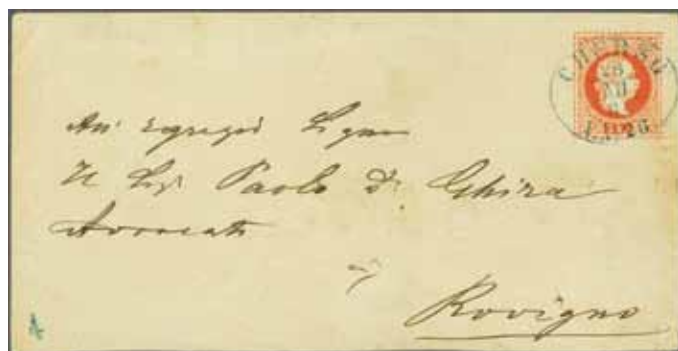 CHERSO
28
VII
All' egregio Signor
Il Sig. Paolo Dr. Ghira
Avvocato
Rovigno